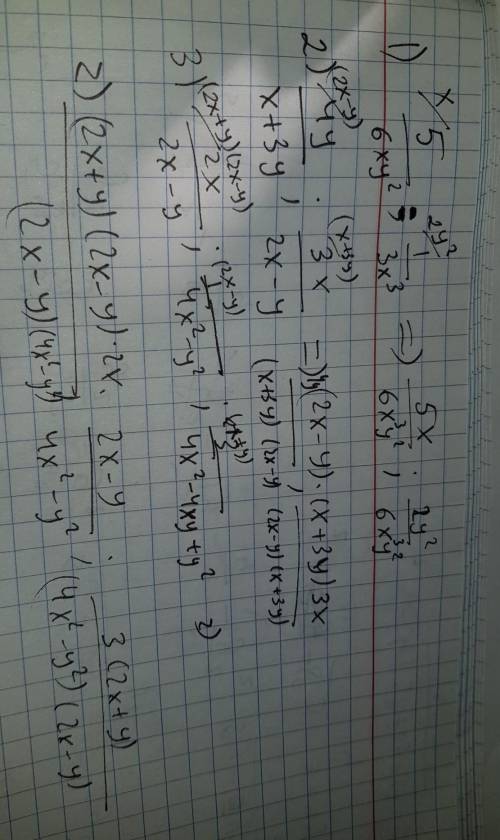 1) x/ 5/6xy² ; 2y²/ 1/3x³ => 5x/6x³y² ; 2y²/6x³y²
2) (2x-y)/ 4y/x+3y ; (x+3y)/ 3x/2x-y => 4y(2x-y)/(x+3y)(2x-y) ; (x+3y)3x/(2x-y)(x+3y)
3) (2x+y)(2x-y)/ 2x/2x-y ; (2x-y)/ 1/4x²-y² ; 3/4x²-4xy+y² =>
=> (2x+y)(2x-y)·2x/(2x-y)(4x²-y²) ; 2x-y/4x²-y² ; 3(2x+y)/(4x²-y²)(2x-y)